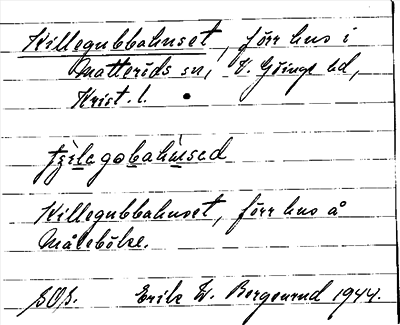 Killegubbahuset, förr hus i
Matteröds sn, V. Göinge hd,
Krist. l.
Killegubbahuset, förr hus å
Målebölke.
Erik W. Bergenrud 1944.